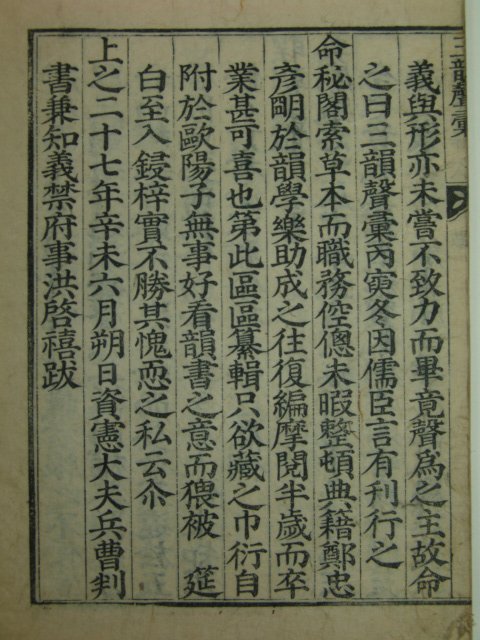 三韻聲彙
義與形亦未嘗不致力而畢竟聲爲之主故命
之曰三韻聲彙丙寅冬因儒臣言有刊行之
命秘閣索草本而職務倥傯未暇整頓典籍鄭忠
彦䎽於韻學樂助成之往復編摩閱半歲而卒
業甚可喜也第此區區纂輯只欲藏之巾衍自
附於歐陽子無事好看韻書之意而猥被 筵
白至入鋟梓實不勝其愧恧之私云尒
上之二十七年辛未六月朔日資憲大夫兵曹判
書兼知義禁府事洪啓禧跋